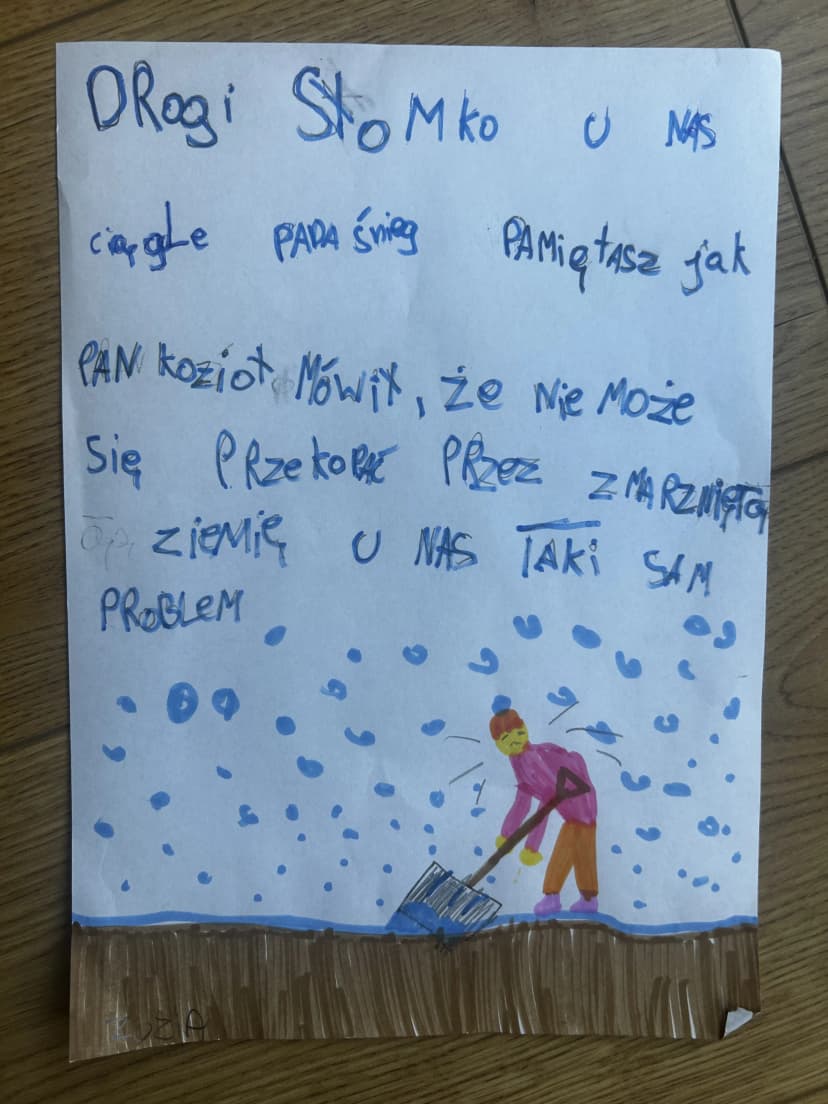 DRogi SłoMko U NAS
ciągLe PADA śnieg PAMiętASz jak
PAN kozioł MówiŁ, że Nie Może
Się PRzekoPAć PRzez zMARzNiętą
ZIEMię U NAS TAki SAM
PRoBLEM
ZUZA